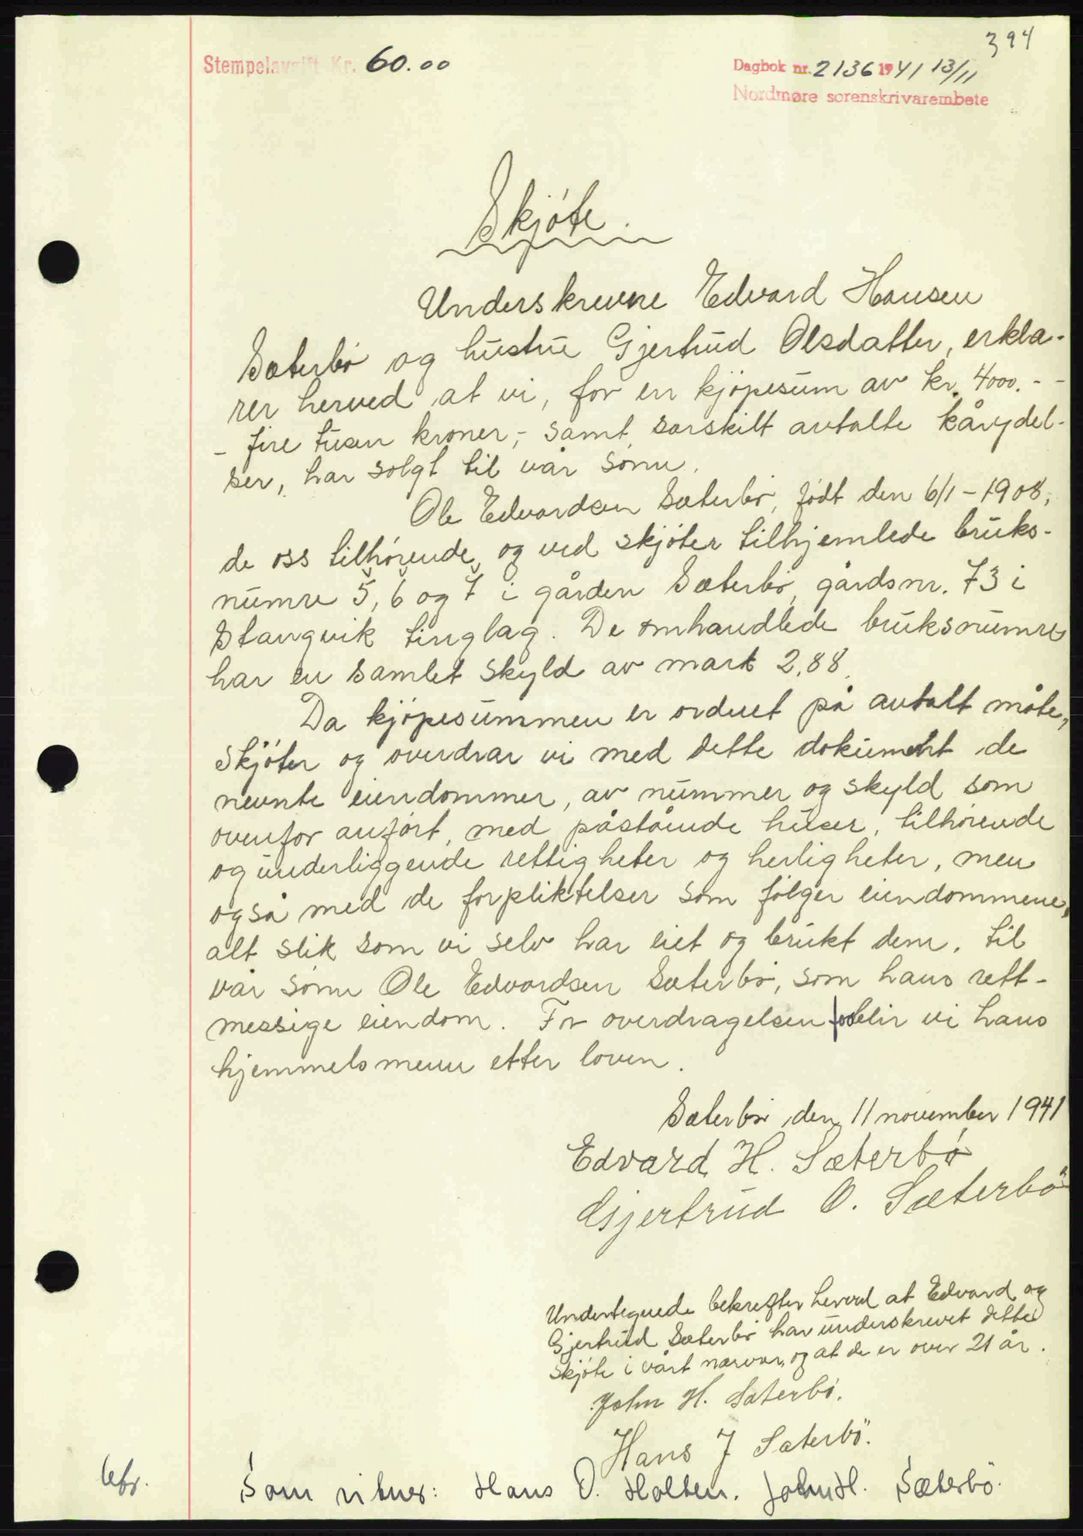 394
Stempelavgift Kr. 60.00
Dagbok nr. 2136 1941 13/11
Nordmøre sorenskrivarembete
Skjøte.
Underskrevne Edvard Hansen
Sæterbø og hustru Gjertrud Olsdatter, erklæ-
rer herved at vi, for en kjøpesum av kr. 4000. - -
- fire tusen kroner,- samt særskilt avtalte kårydel-
ser, har solgt til vår sønn,
Ole Edvardsen Sæterbø, født den 6/1 - 1908,
de oss tilhørende, og ved skjøter tilhjemlede bruks-
numre 5, 6 og 7 i gården Sæterbø, gårdsnr. 73 i
Stangvik tinglag. De omhandlede bruksnumre
har en samlet skyld av mark 2,88.
Da kjøpesummen er ordnet på avtalt måte,
skjøter og overdrar vi med dette dokument de
nevnte eiendommer, av nummer og skyld som
ovenfor anført, med påstående huser, tilhørende
og underliggende rettigheter og herligheter, men
også med de forpliktelser som følger eiendommene,
alt slik som vi selv har eiet og brukt dem, til
vår sønn Ole Edvardsen Sæterbø, som hans rett-
messige eiendom. For overdragelsen blir vi hans
hjemmelsmenn etter loven.
Sæterbø den 11 november 1941
Edvard H. Sæterbø
Gjertrud O. Sæterbø
Undertegnede bekrefter herved at Edvard og
Gjertrud Sæterbø har underskrevet dette
skjøte i vårt nærvær, og at de er over 21 år.
John H. Sæterbø.
Hans J Sæterbø.
Som vitner: Hans O. Holten. John H. Sæterbø.